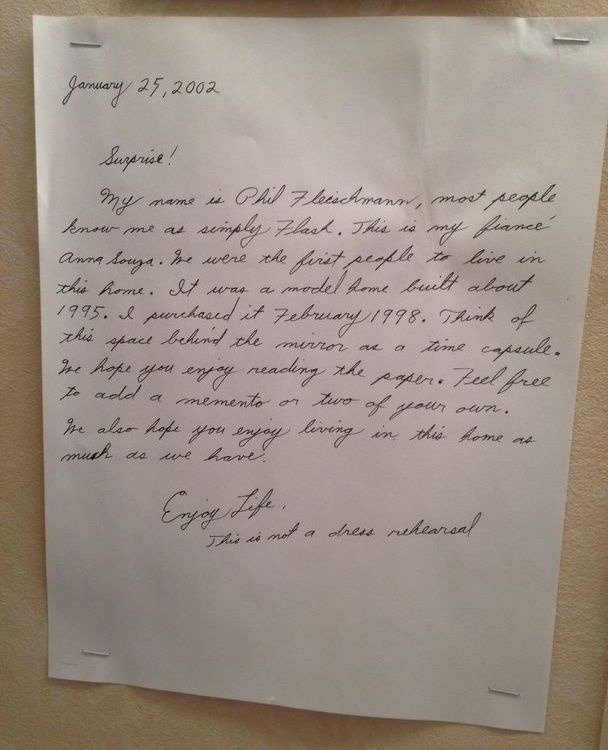 January 25, 2002
Surprise!
My name is Phil Fleischmann, most people
know me as simply Flash. This is my fiancé
Anna Souza. We were the first people to live in
this home. It was a model home built about
1995. I purchased it February 1998. Think of
this space behind the mirror as a time capsule.
We hope you enjoy reading the paper. Feel free
to add a memento or two of your own.
We also hope you enjoy living in this home as
much as we have.
Enjoy Life,
This is not a dress rehearsal